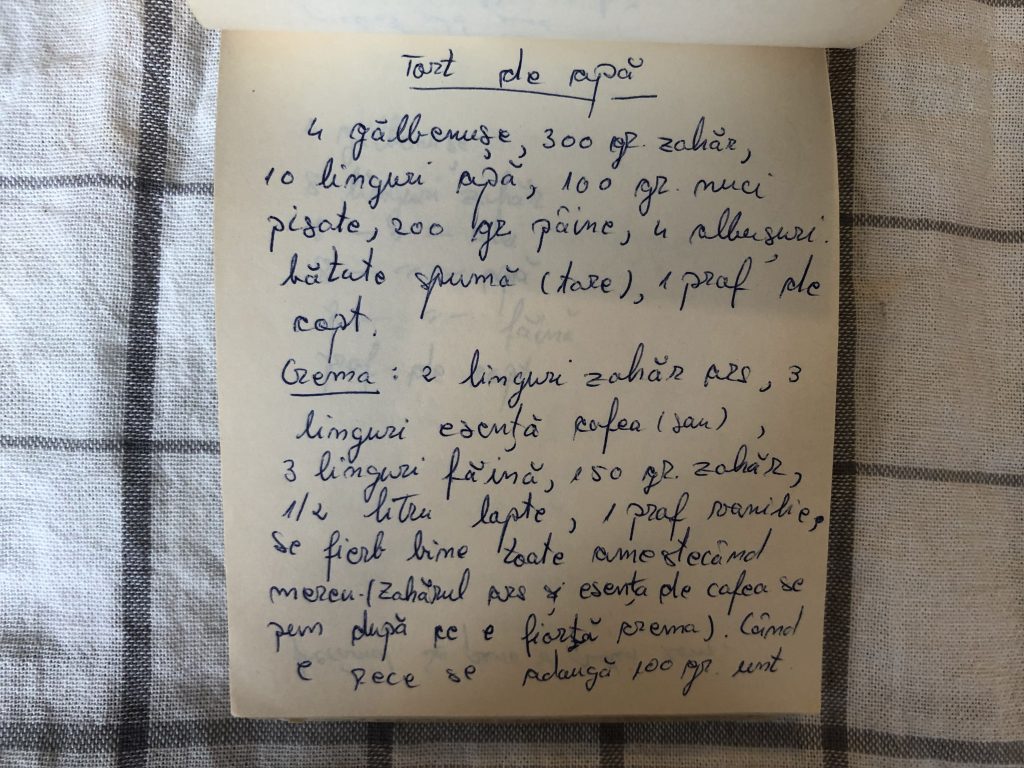 Tort de apă
4 gălbenușe, 300 gr. zahăr,
10 linguri apă, 100 gr. nuci
pisate, 200 gr pâine, 4 albușuri.
bătute spumă (tare), 1 praf de
copt.
Crema : 2 linguri zahăr ars, 3
linguri esență cafea (sau) ,
3 linguri făină, 150 gr. zahăr,
1/2 litru lapte, 1 praf vanilie,
se fierb bine toate amestecând
mereu. (zahărul ars și esența de cafea se
pun după ce e fiartă crema). Când
e rece se adaugă 100 gr. unt